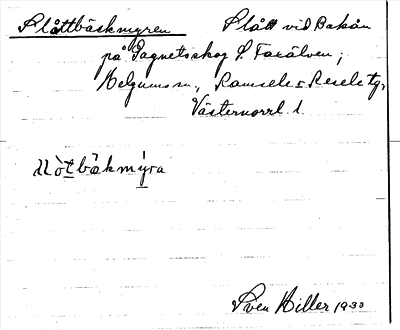 Slåttbäckmyren Slått vid Backån
på Pagnetsskog S. Faxälven;
Helgums sn., Ramsele o Resele tg,
Västernorrl. l.
slòtbäkmýra
Sven Hiller 1930